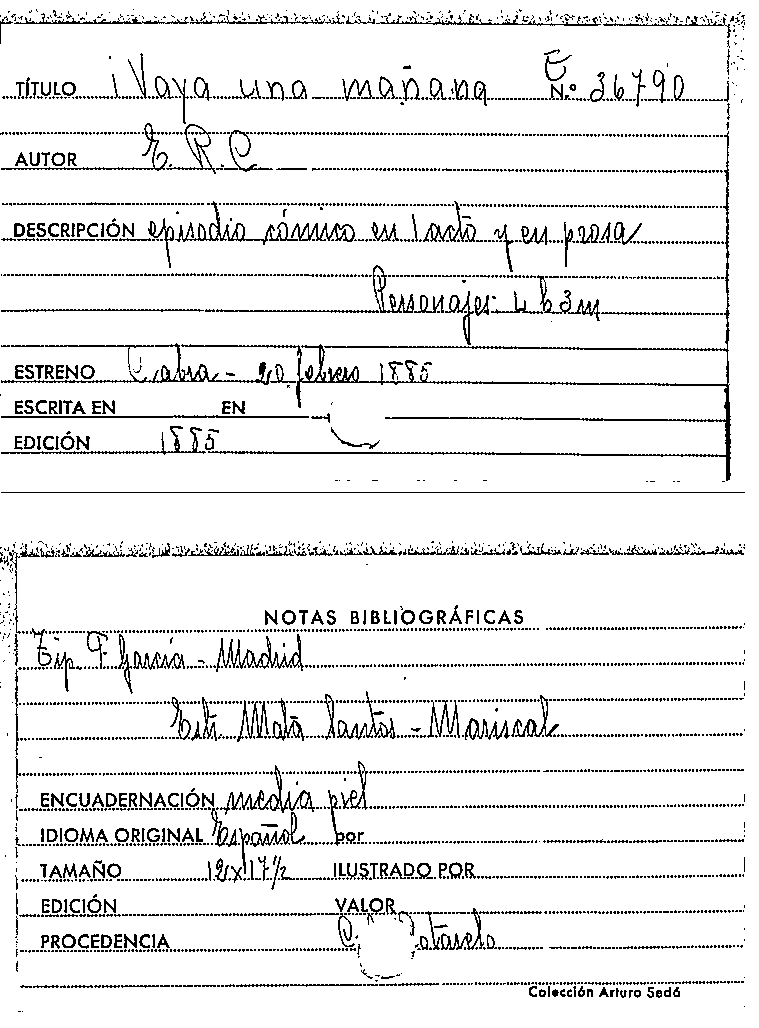 TÍTULO ¡Vaya una mañana E N.º 36790
AUTOR E. R. C
DESCRIPCIÓN episodio cómico en 1 acto y en prosa
Personajes: 4 h 3 m
ESTRENO Cabra - 20 febrero 1885
ESCRITA EN EN
EDICIÓN 1885
NOTAS BIBLIOGRÁFICAS
Tip. F. García - Madrid
Estr Mata Santos - Mariscal
ENCUADERNACIÓN media piel
IDIOMA ORIGINAL Español por
TAMAÑO 12x17½ ILUSTRADO POR
EDICIÓN VALOR
PROCEDENCIA C. otarelo
Colección Arturo Sedó